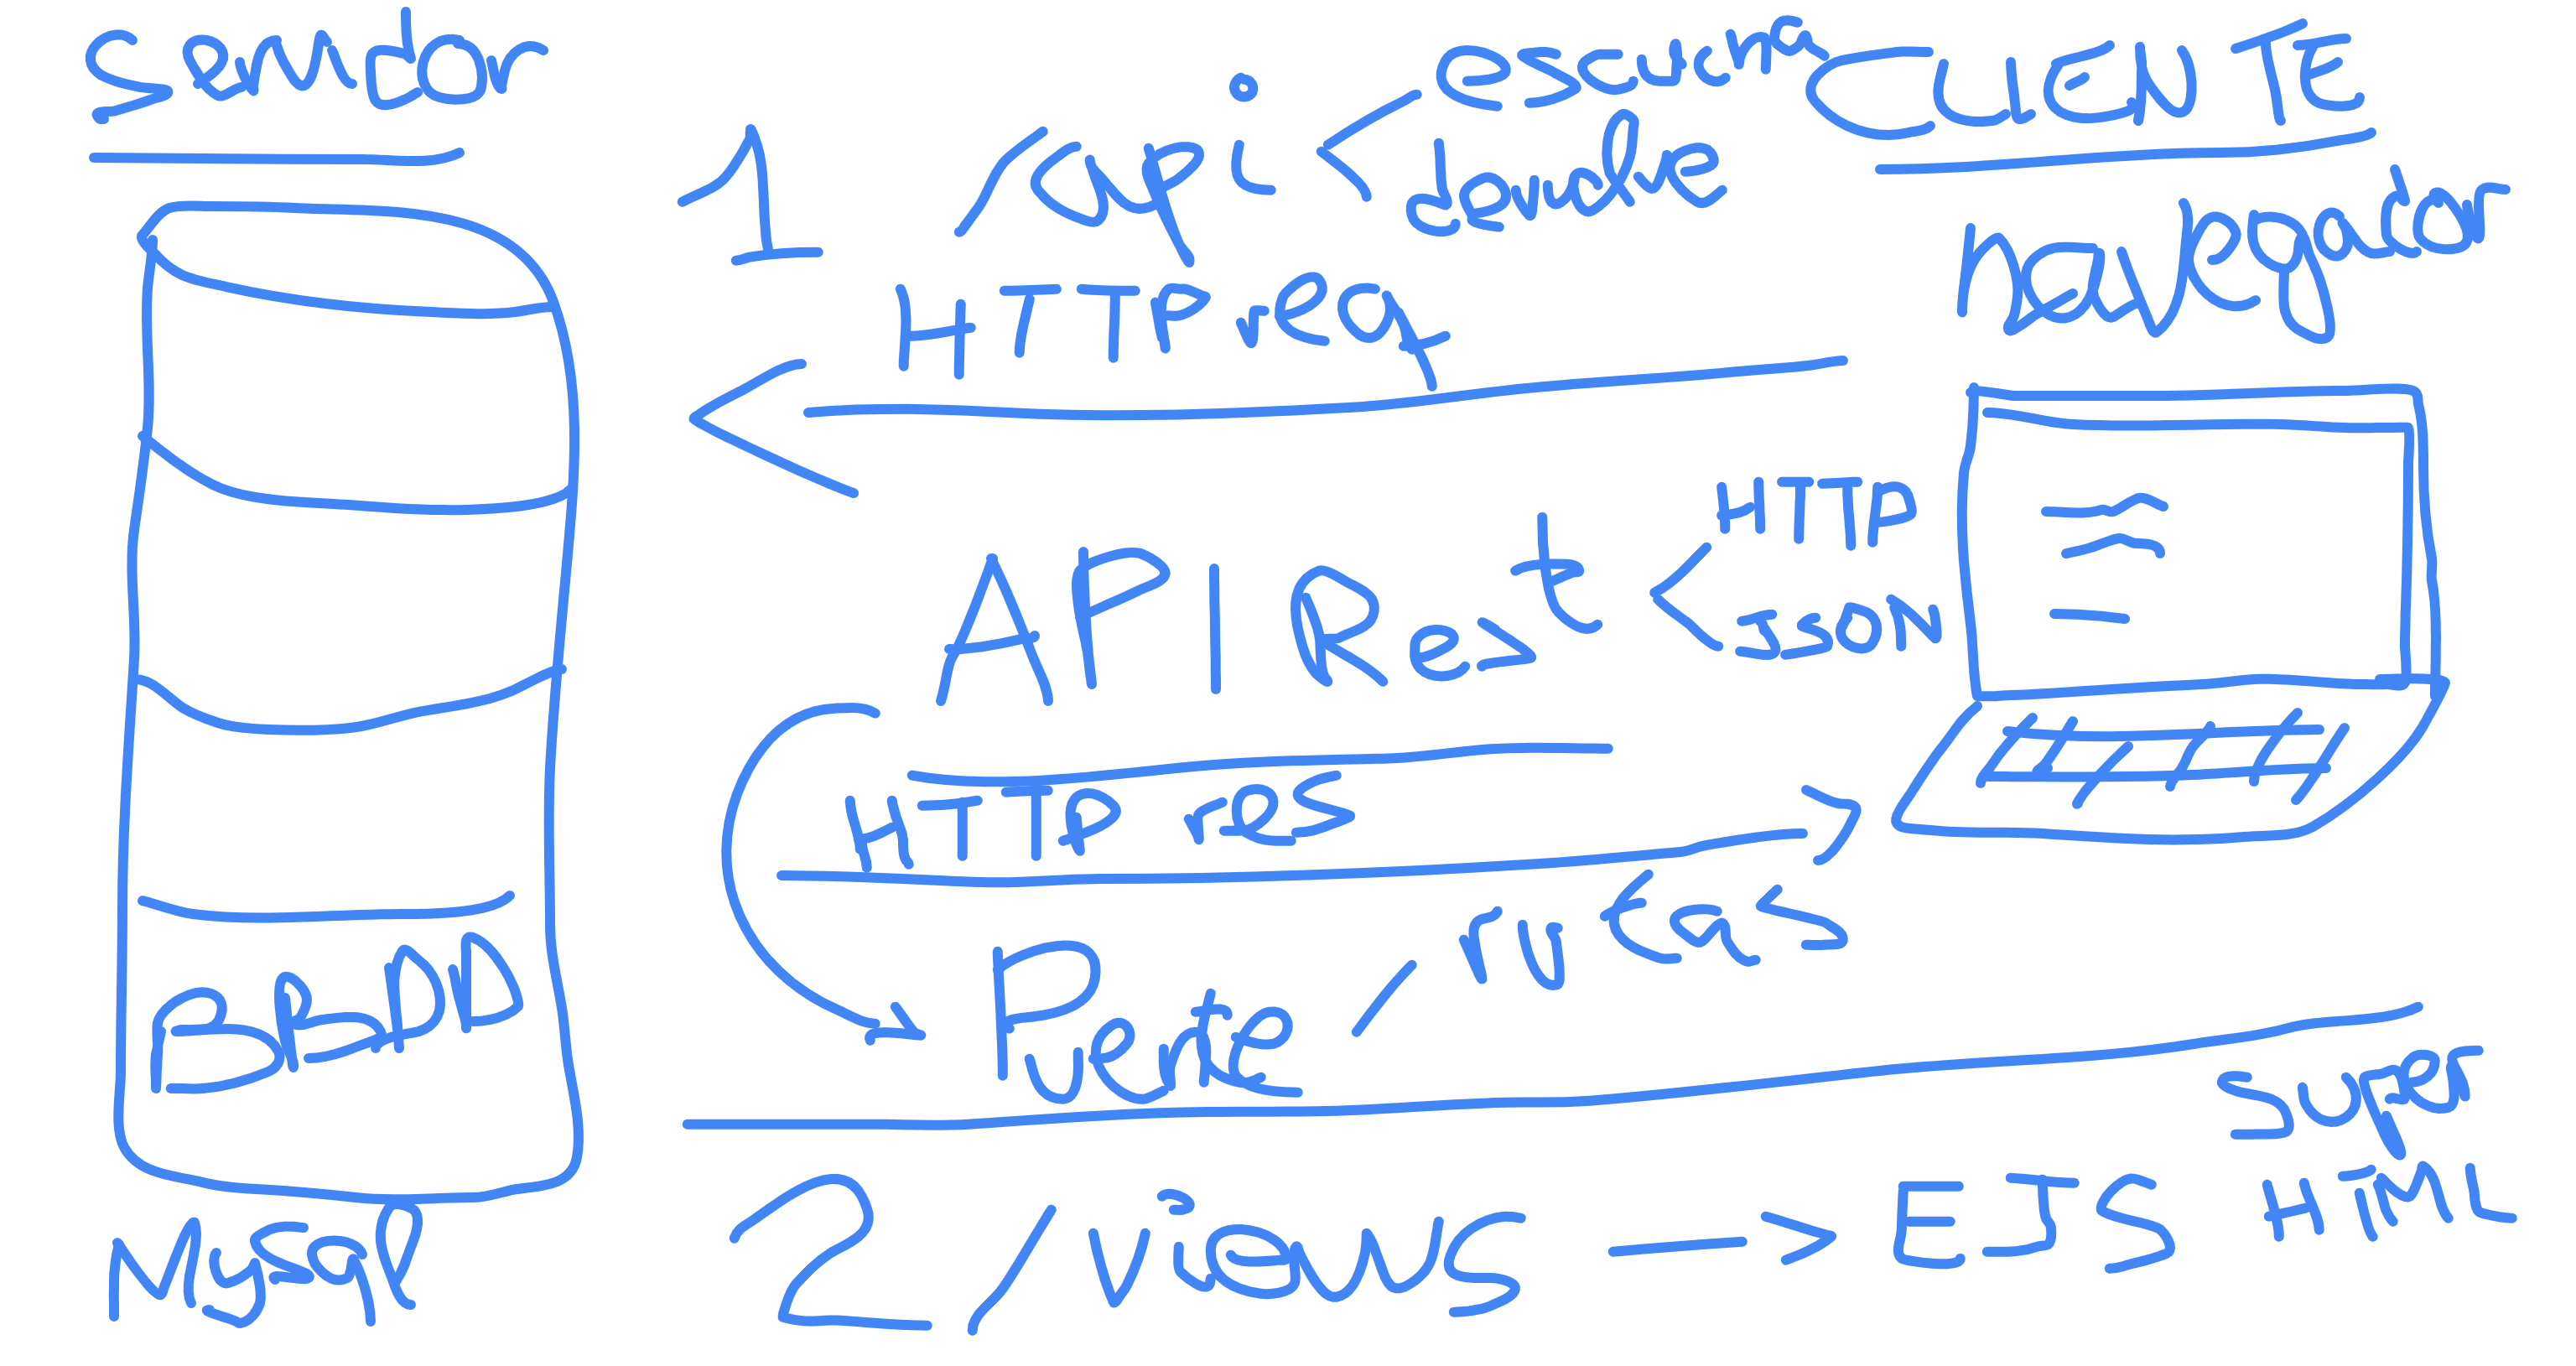 Servidor
1 /api < escucha
devuelve
CLIENTE
navegador
HTTP req
API Rest < HTTP
JSON
HTTP res
Puente / rutas
BBDD
Mysql
2 /views -> EJS
super
HTML